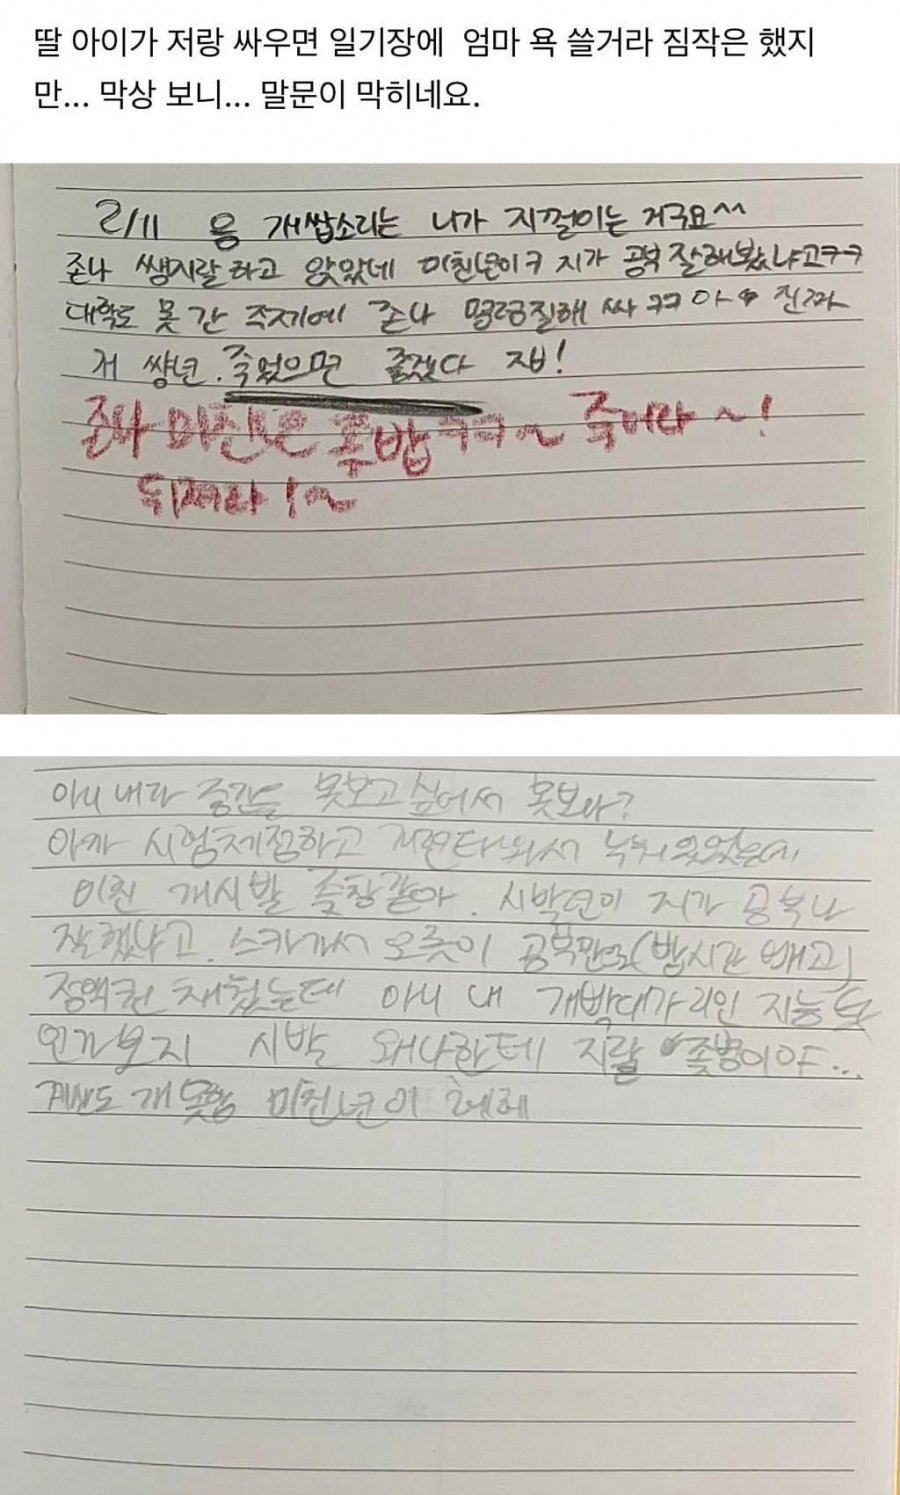 딸 아이가 저랑 싸우면 일기장에 엄마 욕 쓸거라 짐작은 했지
만... 막상 보니... 말문이 막히네요.
2/11 응 개쌉소리는 니가 지껄이는 거구요^^
존나 쌩지랄하고 앉았네 미친년이ㅋ 지가 공부 잘해봤냐고ㅋㅋ
대학도 못 간 주제에 존나 명령질해 싸ㅋㅋ 아 진짜
저 썅년. 죽었으면 좋겠다 지!
존나 미친년 좆밥ㅋㅋ~ 죽어라~!
뒤져라!~
아니 내가 중간을 못보고 싶어서 못보나?
아까 시험체점하고 누워있었는데
미친 개시발 좆창같아. 시박년이 지가 공부나
잘했냐고. 스카가서 오롯이 공부만로(밥시간 빼고)
정액권 채웠는데 아니 내 개박대가리인 지능
시박 왜나한테 지랄 좆병이야...
계산도 개못함 미친년이 헤헤